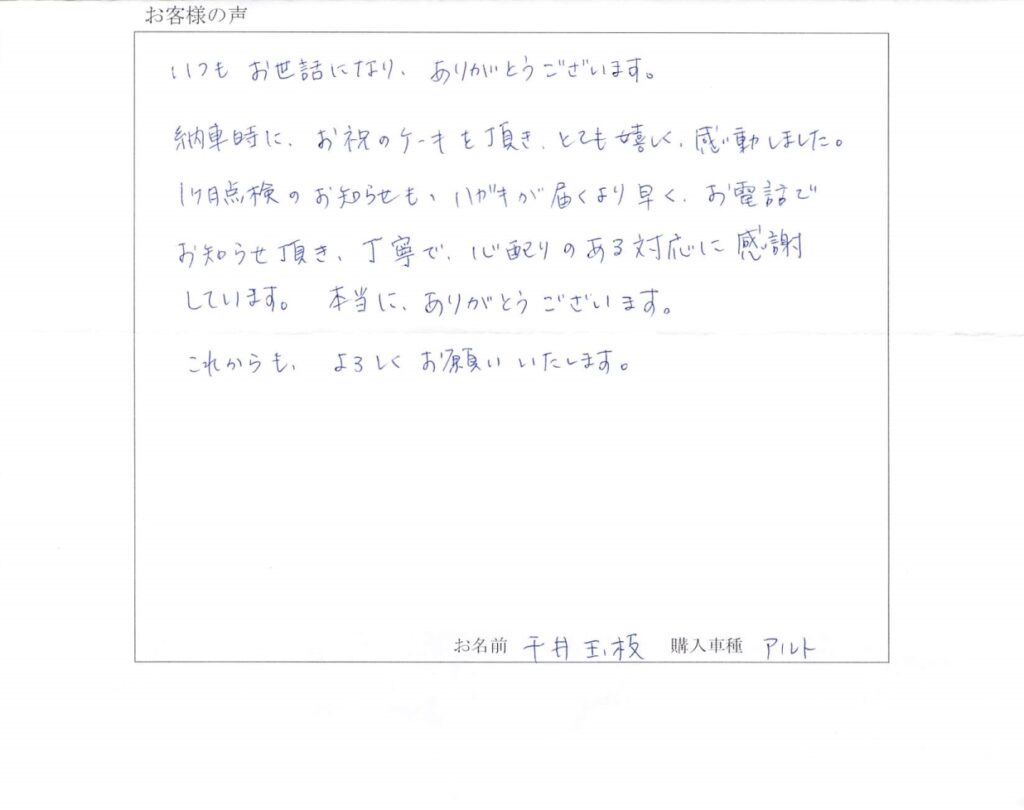 お客様の声
いつも お世話になり、 ありがとうございます。
納車時に、お祝のケーキを頂き、とても嬉しく、感動しました。
1ヶ月点検のお知らせも、ハガキが届くより早く、お電話で
お知らせ頂き、丁寧で、心配りのある対応に感謝
しています。 本当に、ありがとうございます。
これからも、 よろしく お願い いたします。
お名前 平井 玉枝 購入車種 アルト